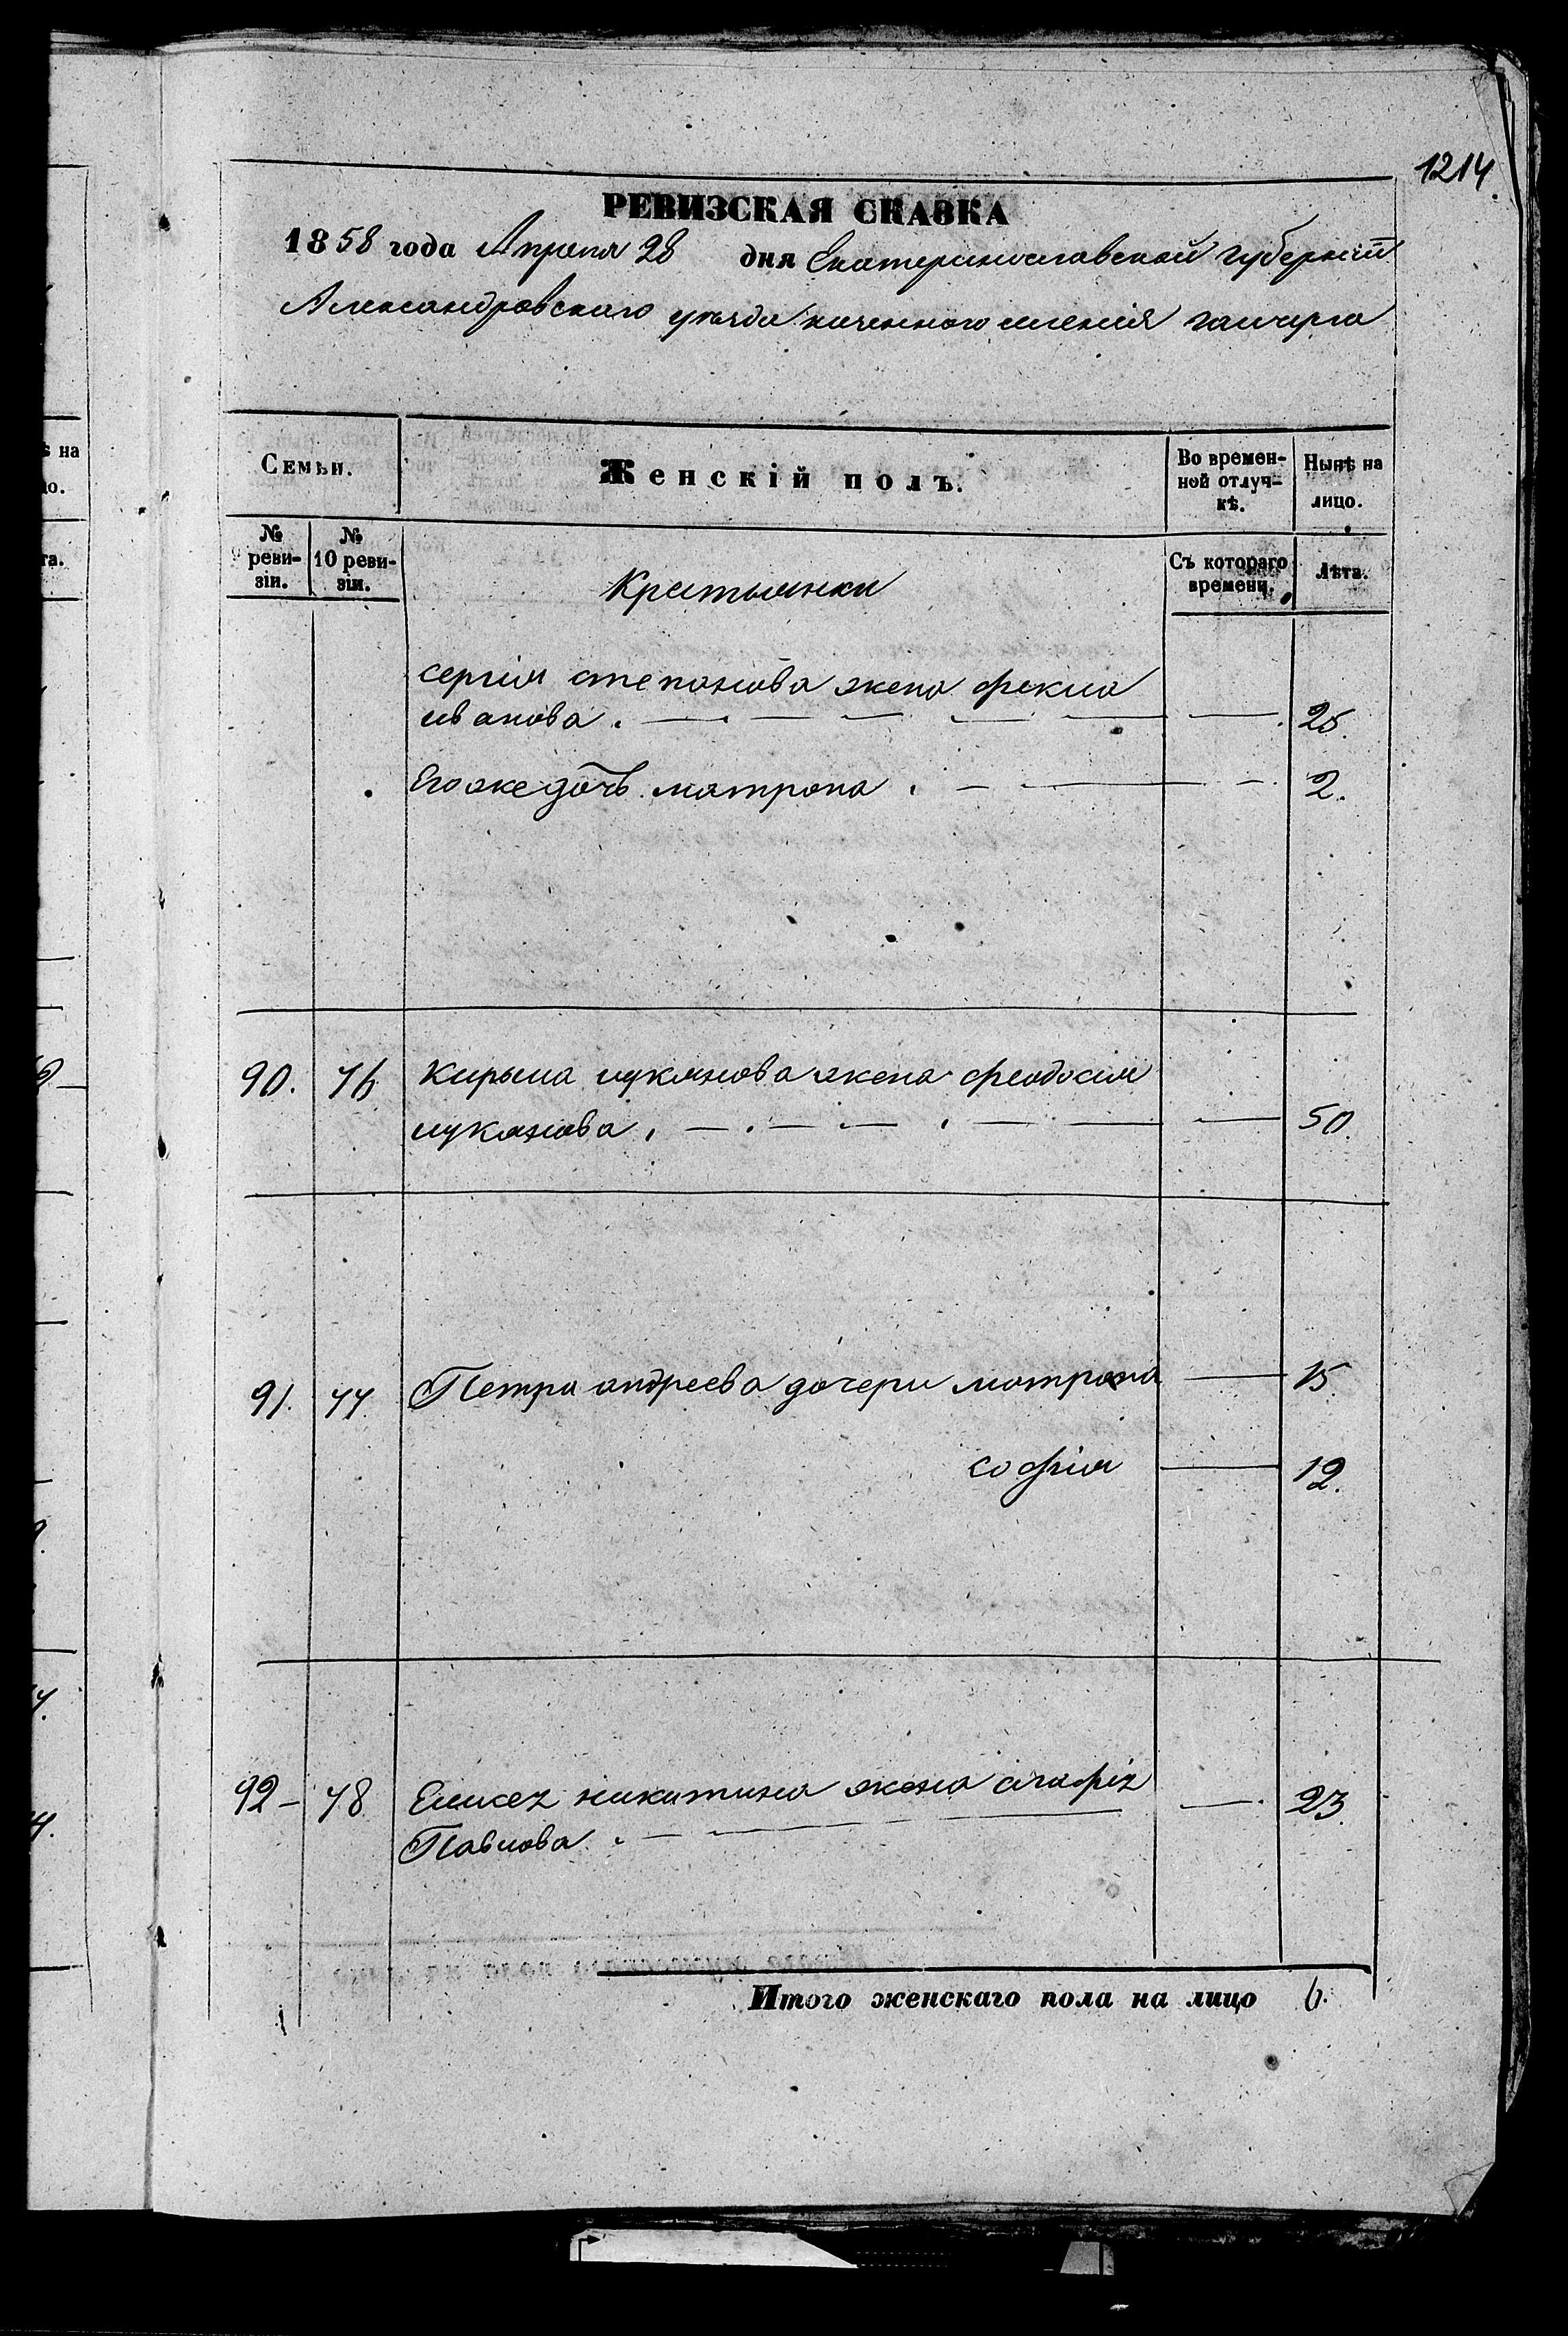 1214.
РЕВИЗСКАЯ СКАЗКА
1858 года Апреля 28 дня Екатеринославской губерніи
Александровского уезда казенного селенія гайчура
Семьи. Женскій полъ. Во времен-ной отлуч-кѣ. Нынѣ на лицо.
№ реви-зіи. № 10 реви-зіи. Съ котораго времени. Лѣта.
Крестьянки
сергія степанова жена фекла
иванова. 25.
Его же дочь матрона. 2.
90. 76 Кирыла лукянова жена феодосія
лукянова. 50.
91. 77. Петра андреева дочери матрона 15.
софія 12.
92 78 Елисея никитина жена агафія 23.
Павлова.
Итого женскаго пола на лицо 6.